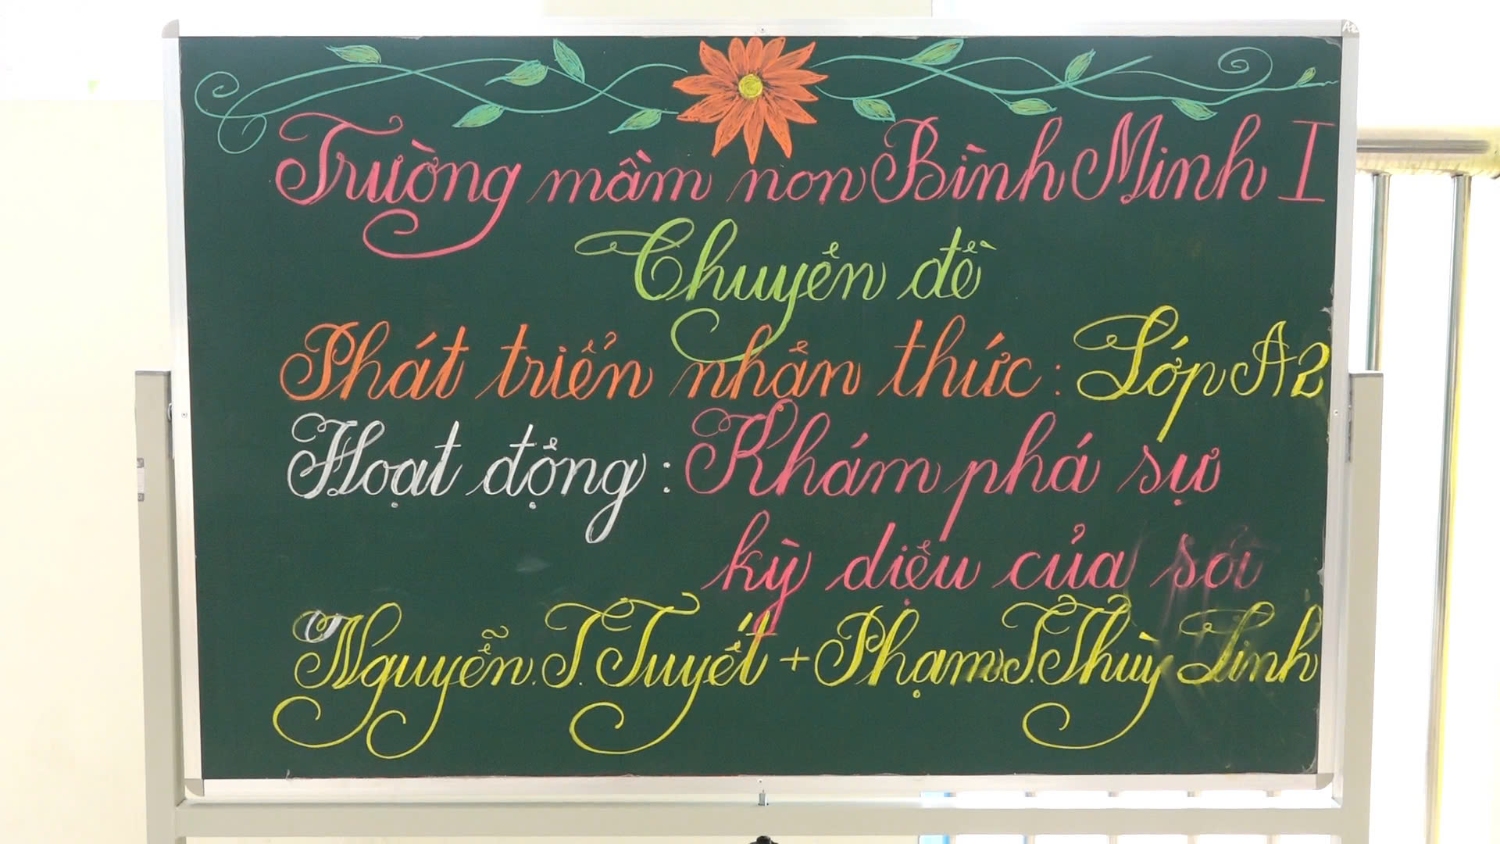 Trường mầm non Bình Minh I
Chuyên đề
Phát triển nhận thức: Lớp A2
Hoạt động: Khám phá sự
kỳ diệu của sỏi
Nguyễn.T.Tuyết + Phạm.T.Thùy Linh